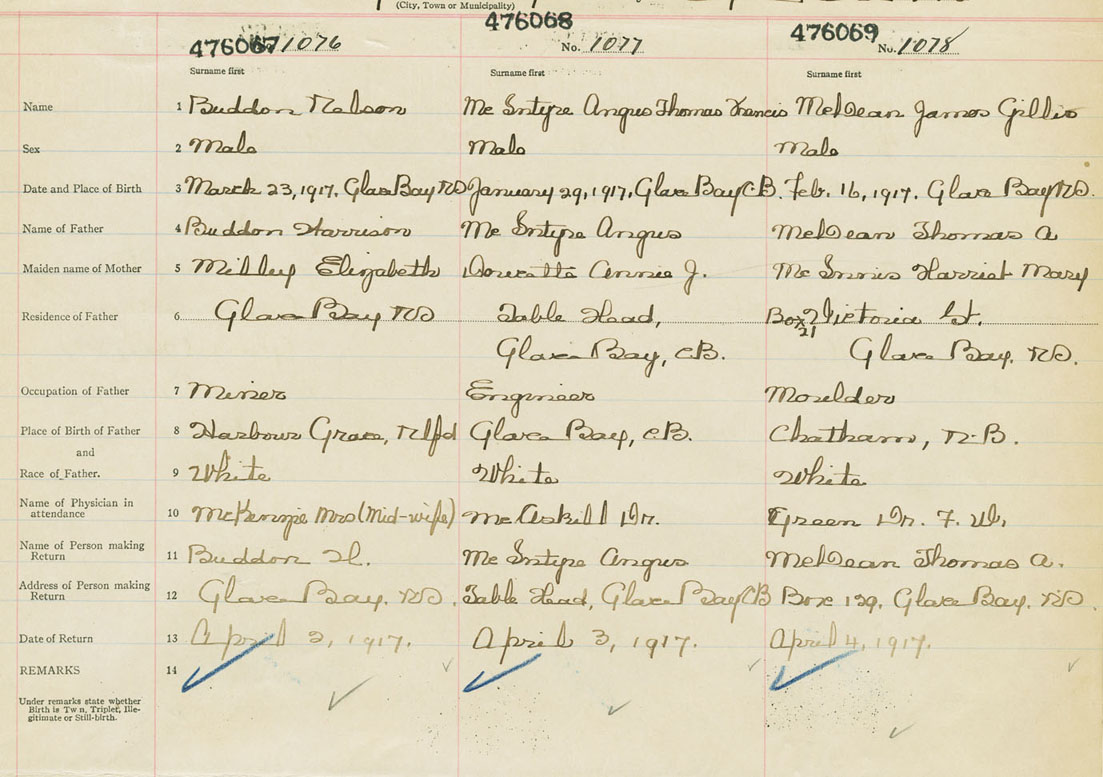 (City, Town or Municipality)
476067 1076
476068 No. 1077
476069 No. 1078
Surname first Surname first Surname first
Name 1 Buddon Nelson Mc Intyre Angus Thomas Francis McLean James Gillis
Sex 2 Male Male Male
Date and Place of Birth 3 March 23, 1917, Glace Bay NS January 29, 1917, Glace Bay C.B. Feb. 16, 1917. Glace Bay NS.
Name of Father 4 Buddon Harrison Mc Intyre Angus McLean Thomas A
Maiden name of Mother 5 Milley Elizabeth Annie J. Mc Innis Harriet Mary
Residence of Father 6 Glace Bay NS Table Head, Box 21 Victoria St.
Glace Bay, C.B. Glace Bay. NS.
Occupation of Father 7 Miner Engineer Moulder
Place of Birth of Father 8 Harbour Grace, Nlfd Glace Bay, C.B. Chatham, N-B.
and
Race of Father. 9 White White White
Name of Physician in
attendance 10 McKenzie Mrs (Mid-wife) McAskill Dr. Green Dr. F. W.
Name of Person making
Return 11 Buddon H. Mc Intyre Angus McLean Thomas A.
Address of Person making
Return 12 Glace Bay. NS. Table Head, Glace Bay CB Box 129, Glace Bay. NS.
Date of Return 13 April 2, 1917. April 3, 1917. April 4, 1917.
REMARKS 14
Under remarks state whether
Birth is Tw n, Triplet, Ille-
gitimate or Still-birth.